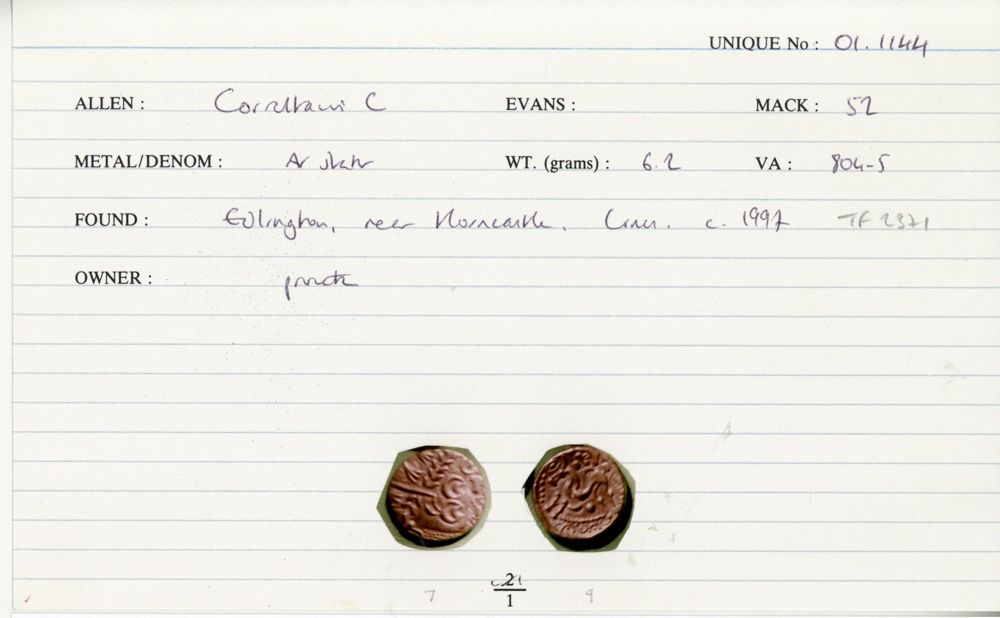 UNIQUE No : 01.1144
ALLEN : Corieltauvi C EVANS : MACK : 52
METAL/DENOM : Ar stater WT. (grams) : 6.2 VA : 804-5
FOUND : Edlington, near Horncastle, Lincs. c. 1997 TF 2371
OWNER : private
7 2 9
1